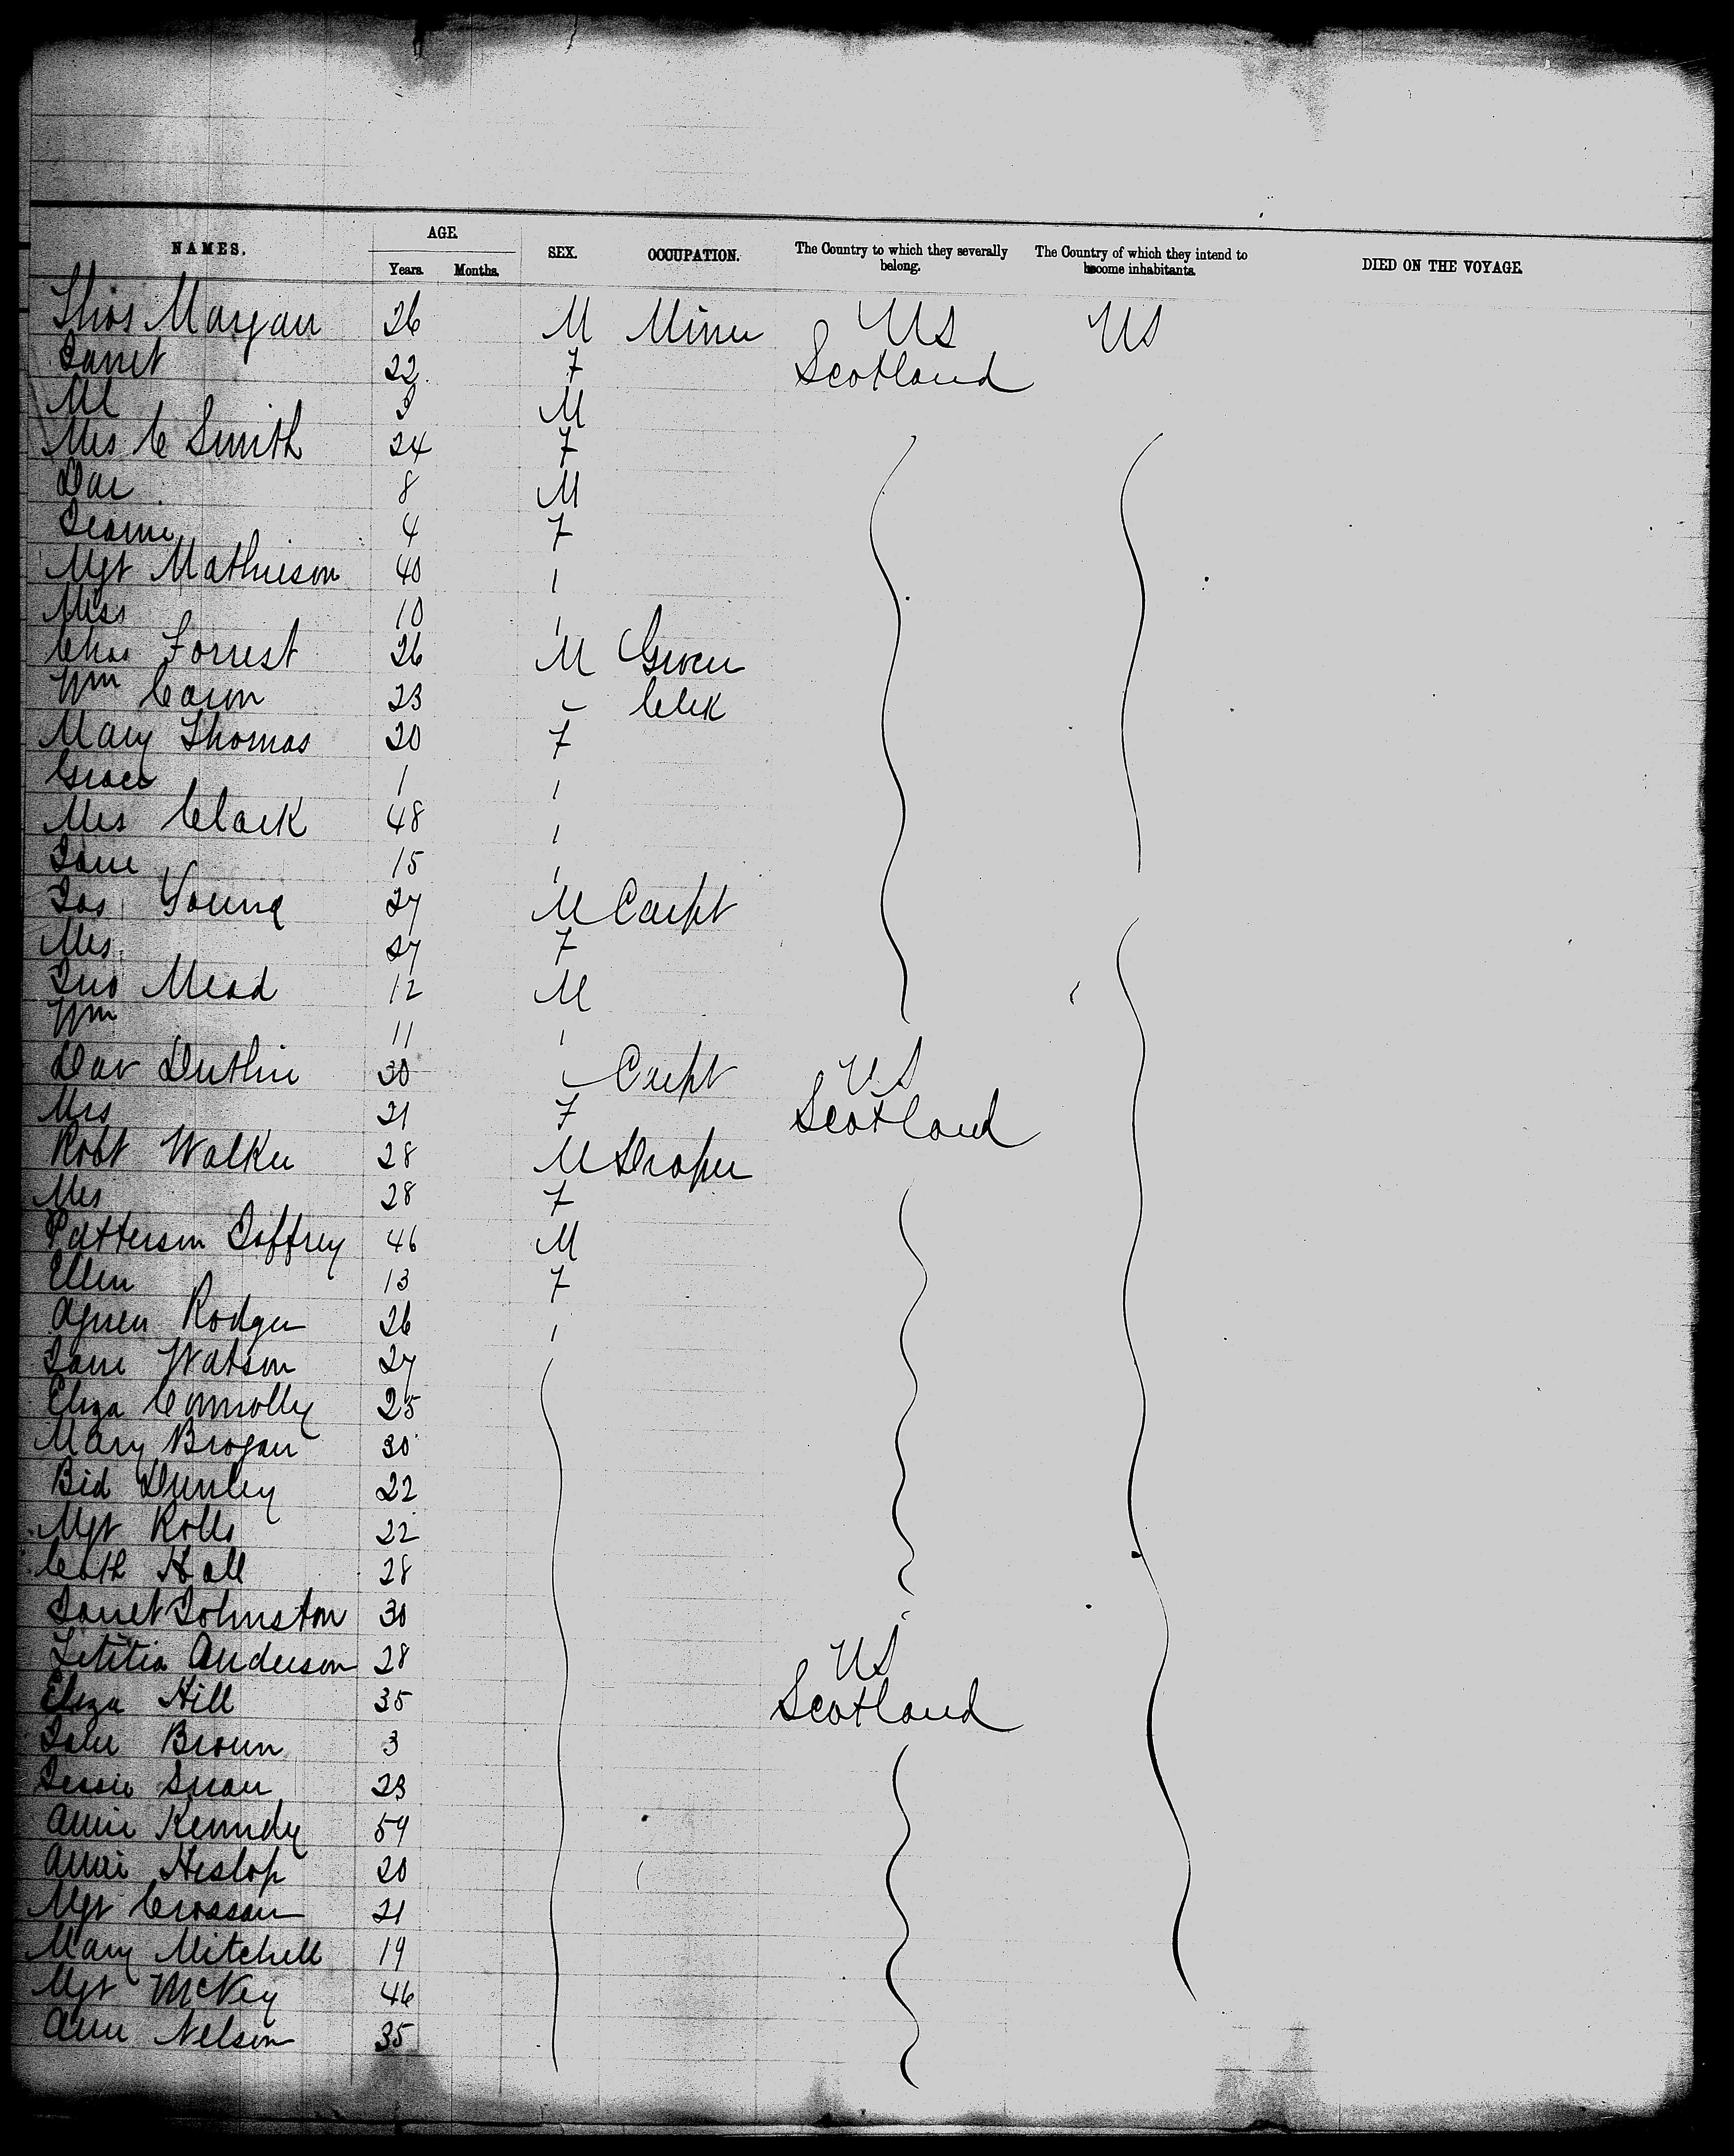 NAMES. AGE. SEX. OCCUPATION. The Country to which they severally belong. The Country of which they intend to become inhabitants. DIED ON THE VOYAGE.
Years. Months.
Thos Morgan 26 M Miner US US
Janet 22 F Scotland
Ml 9 M
Mrs C Smith 24 F
Dav 8 M
Jeanie 4 F
Mgt Mathieson 40 "
Miss 10 "
Chas Forrest 26 M Grocer
Wm Cairn 23 " Clek
Mary Thomas 20 F
Grace 1 "
Mrs Clark 48 "
Jane 15 "
Jas Young 27 M Carpt
Mrs 27 F
Jno Mead 12 M
Wm 11 "
Dav Duthie 30 " Carpt US
Mrs 21 F Scotland
Robt Walker 28 M Draper
Mrs 28 F
Patterson Joffrey 46 M
Ellen 13 F
Agnes Rodger 26 "
Jane Watson 27
Eliza Connolly 25
Mary Brogan 30
Bid Dunley 22
Mgt Rolls 22
Cath Hall 28
Janet Johnston 30
Letitia Anderson 28 US
Eliza Hill 35 Scotland
Jane Broun 3
Jessie Swan 23
Annie Kennedy 59
Annie Heslop 20
Mgt Crossan 21
Mary Mitchell 19
Mgt McVey 46
Ann Nelson 35